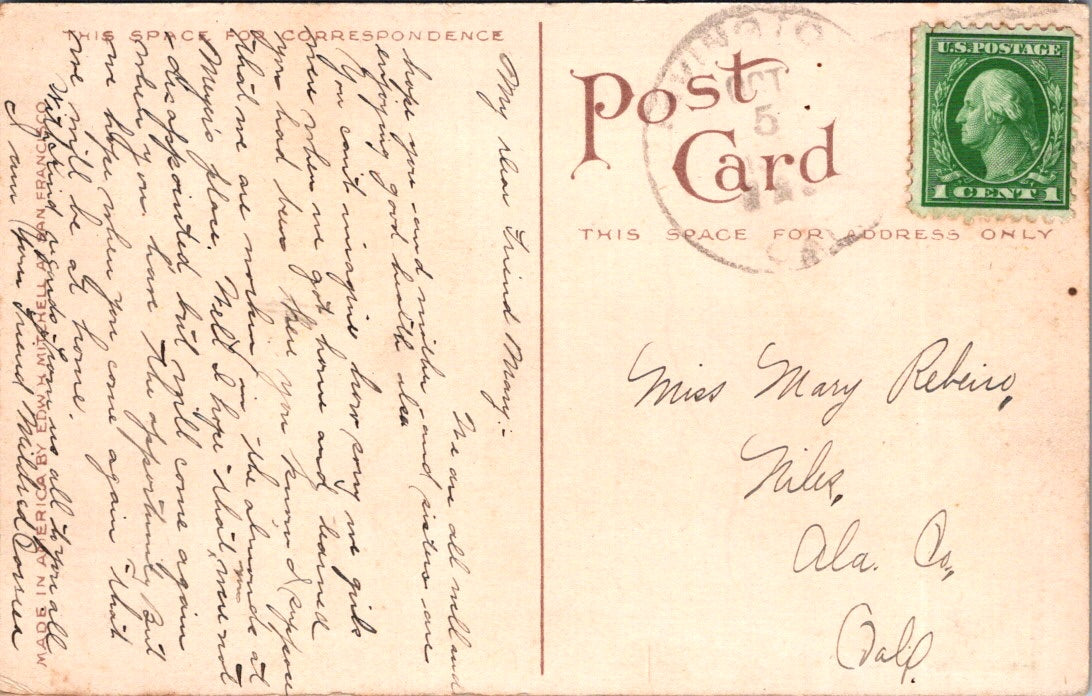 THIS SPACE FOR CORRESPONDENCE
My dear Friend Mary:-
We are all well and
hope you and mother and sisters are
enjoying good health also
You can't imagine how sorry we girls
were when we got home and learned
you had been here you know I suppose
that we are workin in the almonds at
Meyers place. Well I hope that you were not
disappointed but will come again
when you have the opportunity But
we hope when you come again that
we will be at home.
With kind regards from us all to you all
I am Your Friend Mildred
MADE IN AMERICA BY EDW. H. MITCHELL AT SAN FRANCISCO
Post
Card
THIS SPACE FOR ADDRESS ONLY
OCT
5
CAL
U.S. POSTAGE
1 CENT 1
Miss Mary Rebeiro,
Niles,
Ala. Co.,
Calif